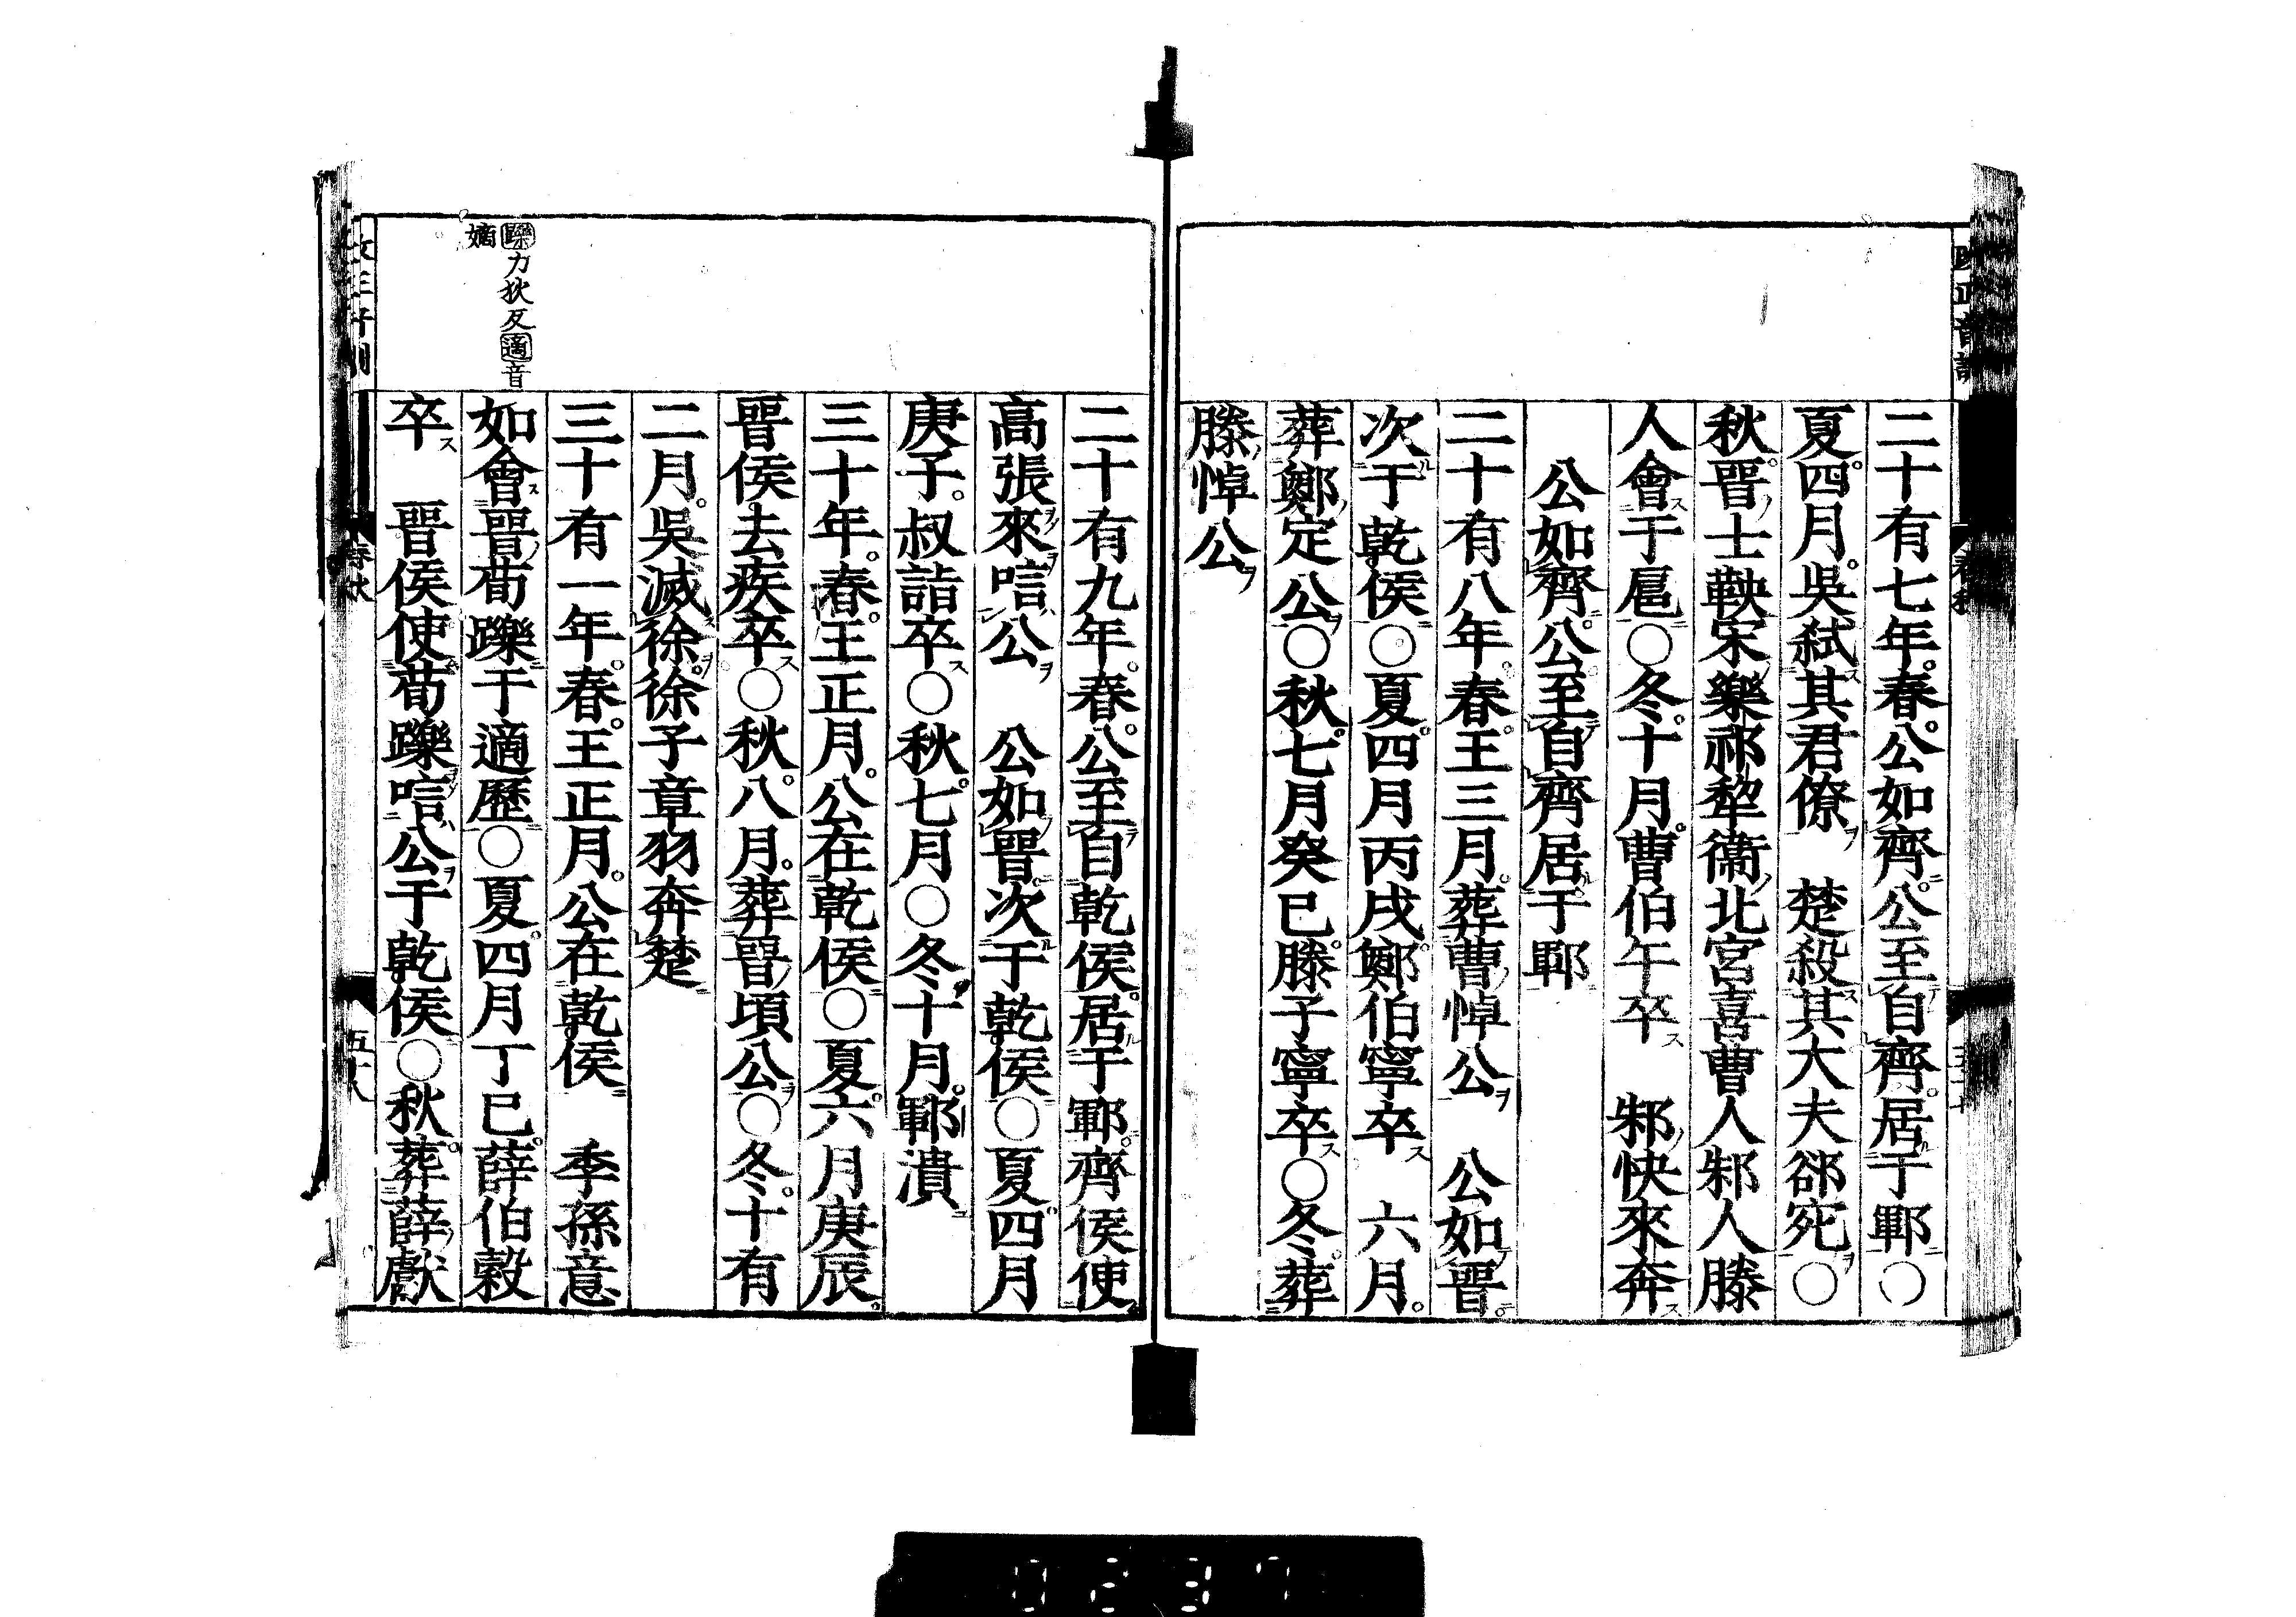 二十有七年。春。公如齊。公至自齊。居于鄆○
夏。四月。吳弒其君僚　楚殺其大夫郤宛○
秋。晉士鞅宋樂祁犂衞北宮喜曹人邾人滕
人會于扈○冬。十月。曹伯午卒　邾快來奔
公如齊。公至自齊居于鄆
二十有八年。春。王三月。葬曹悼公　公如晉。
次于乾侯○夏。四月丙戌。鄭伯寧卒　六月。
葬鄭定公○秋。七月癸巳。滕子寧卒○冬。葬
滕悼公
二十有九年。春。公至自乾侯。居于鄆。齊侯使
高張來唁公　公如晉。次于乾侯○夏。四月
庚子。叔詣卒○秋。七月○冬。十月。鄆潰
三十年。春。王正月。公在乾侯○夏。六月庚辰。
晉侯去疾卒○秋。八月。葬晉頃公○冬。十有
二月。吳滅徐。徐子章羽奔楚
躒力狄反適音
嫡
三十有一年。春。王正月。公在乾侯　季孫意
如會晉荀躒于適歷○夏。四月丁巳。薛伯穀
卒　晉侯使荀躒唁公于乾侯○秋。葬薛獻
春秋
五十八